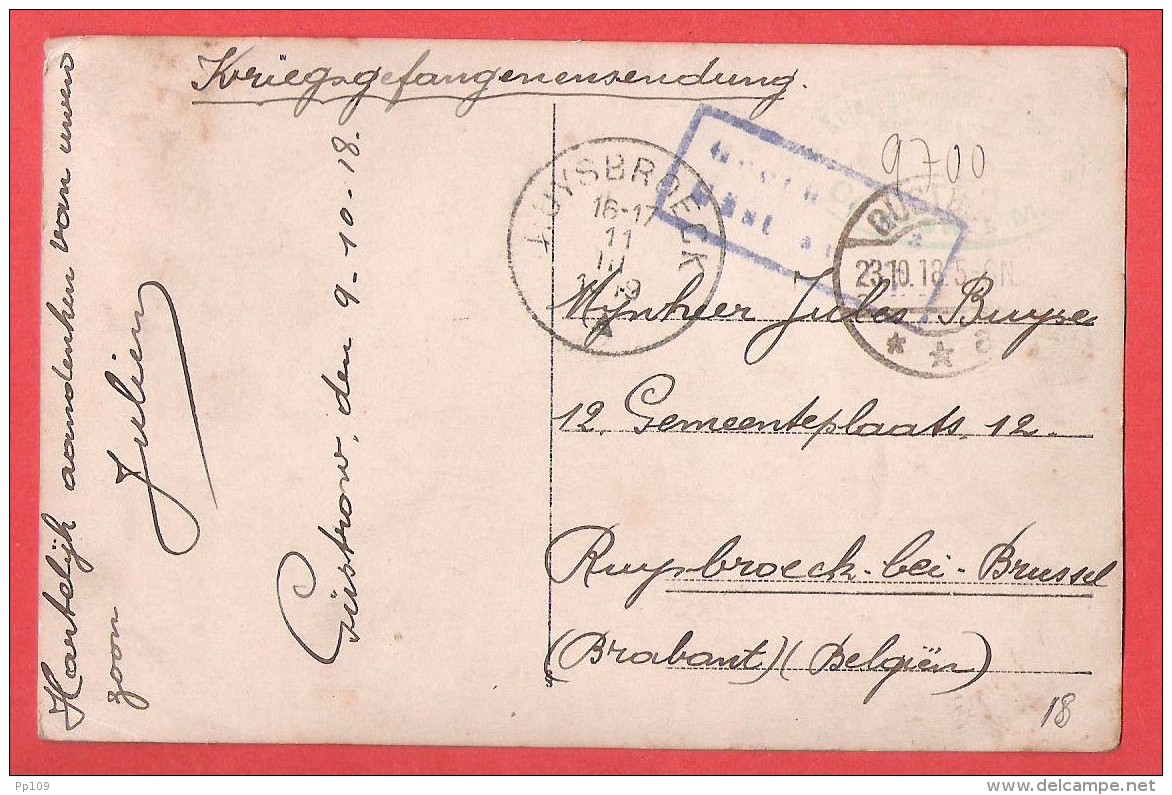 Kriegsgefangenensendung.
Hartelijk aandenken van uwen
zoon
Julien
Güstrow, den 9-10-18.
RUYSBROECK
16-17
11
III
9700
23.10.18.5-6N.
Mynheer Jules Buyse
12. Gemeenteplaats, 12.
Ruysbroeck-bei-Brussel
(Brabant) (Belgiën)
18
Pp109
delcampe.net